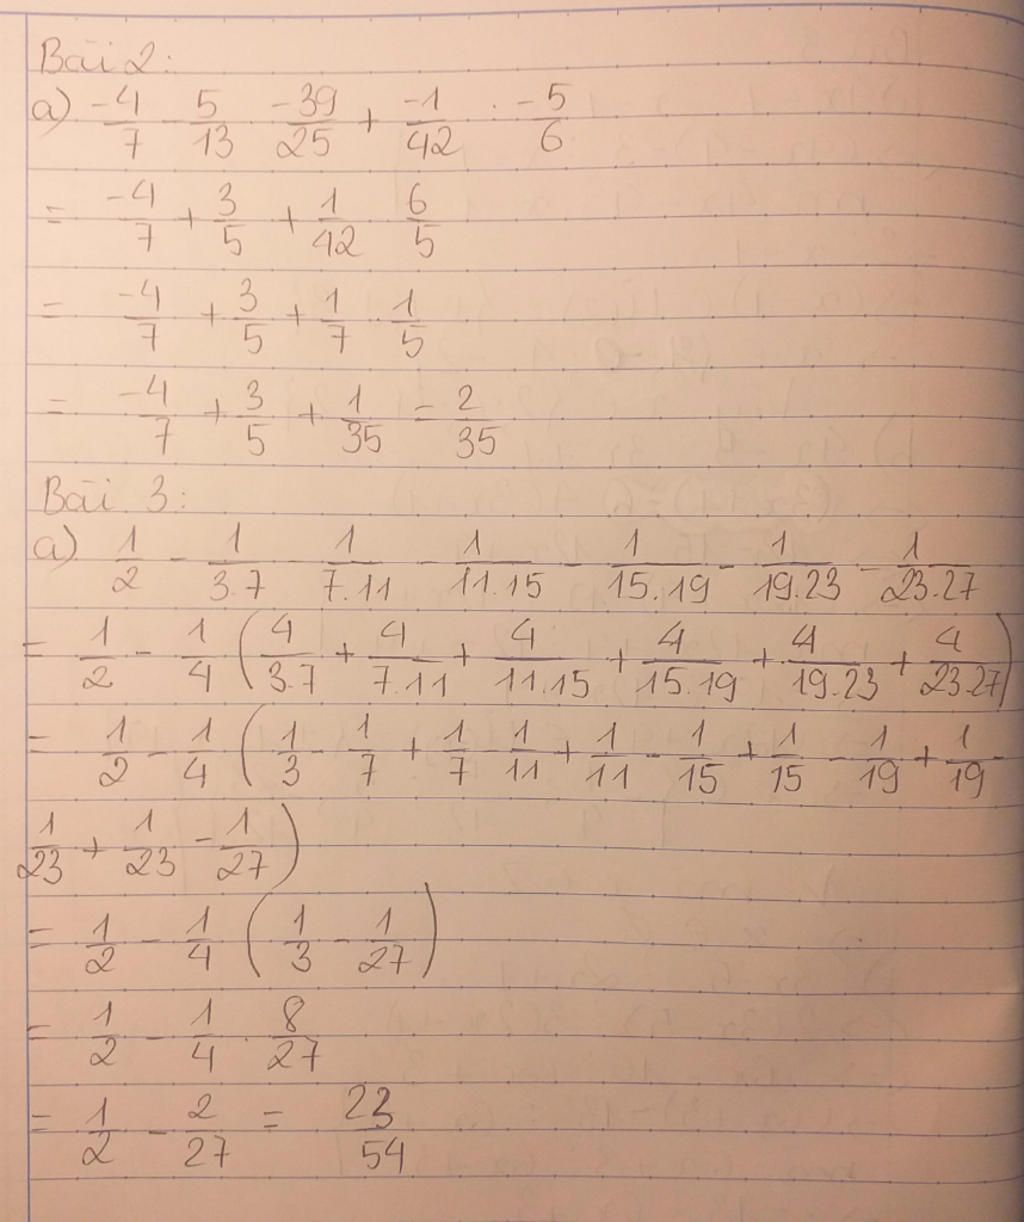 Bài 2:
a) -4/7 - 5/13 . -39/25 + -1/42 : -5/6
= -4/7 + 3/5 + 1/42 . 6/5
= -4/7 + 3/5 + 1/7 . 1/5
= -4/7 + 3/5 + 1/35 = 2/35
Bài 3:
a) 1/2 - 1/3.7 - 1/7.11 - 1/11.15 - 1/15.19 - 1/19.23 - 1/23.27
= 1/2 - 1/4 (4/3.7 + 4/7.11 + 4/11.15 + 4/15.19 + 4/19.23 + 4/23.27)
= 1/2 - 1/4 (1/3 - 1/7 + 1/7 - 1/11 + 1/11 - 1/15 + 1/15 - 1/19 + 1/19 -
1/23 + 1/23 - 1/27)
= 1/2 - 1/4 (1/3 - 1/27)
= 1/2 - 1/4 . 8/27
= 1/2 - 2/27 = 23/54